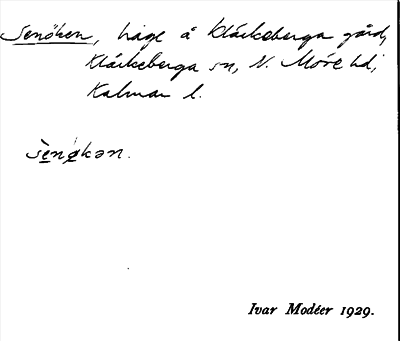 Senöken, hage å Kläckeberga gård,
Kläckeberga sn, N. Möre hd,
Kalmar l.
sènøkən.
Ivar Modéer 1929.